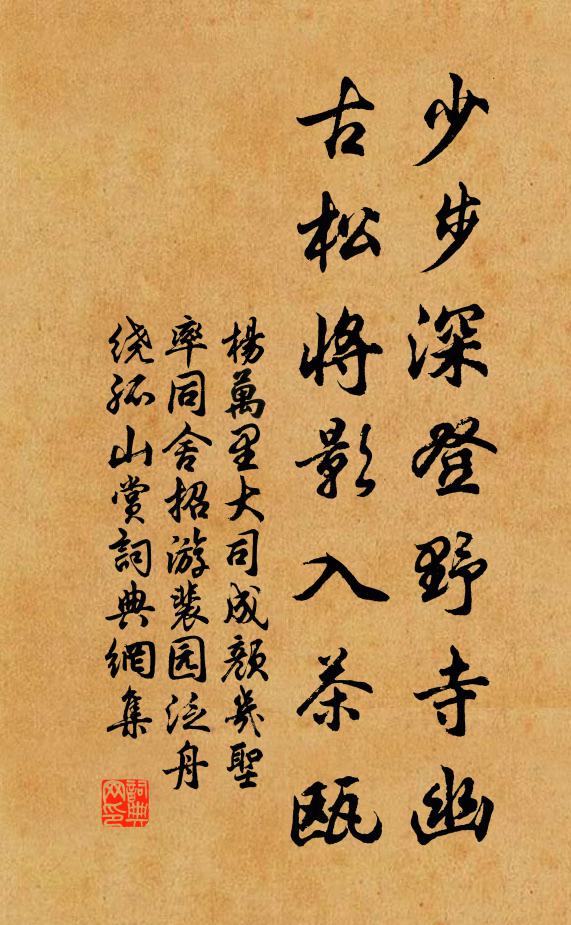 少步深登野寺幽
古松将影入茶瓯
楊萬里大司成颜幾聖
率同舍招游裴园泛舟
绕孤山赏詞典網集
詞典
网印